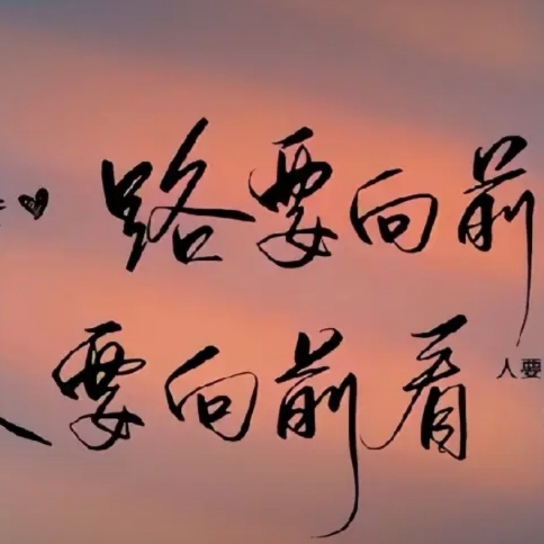 路要向前
人要向前看
人要